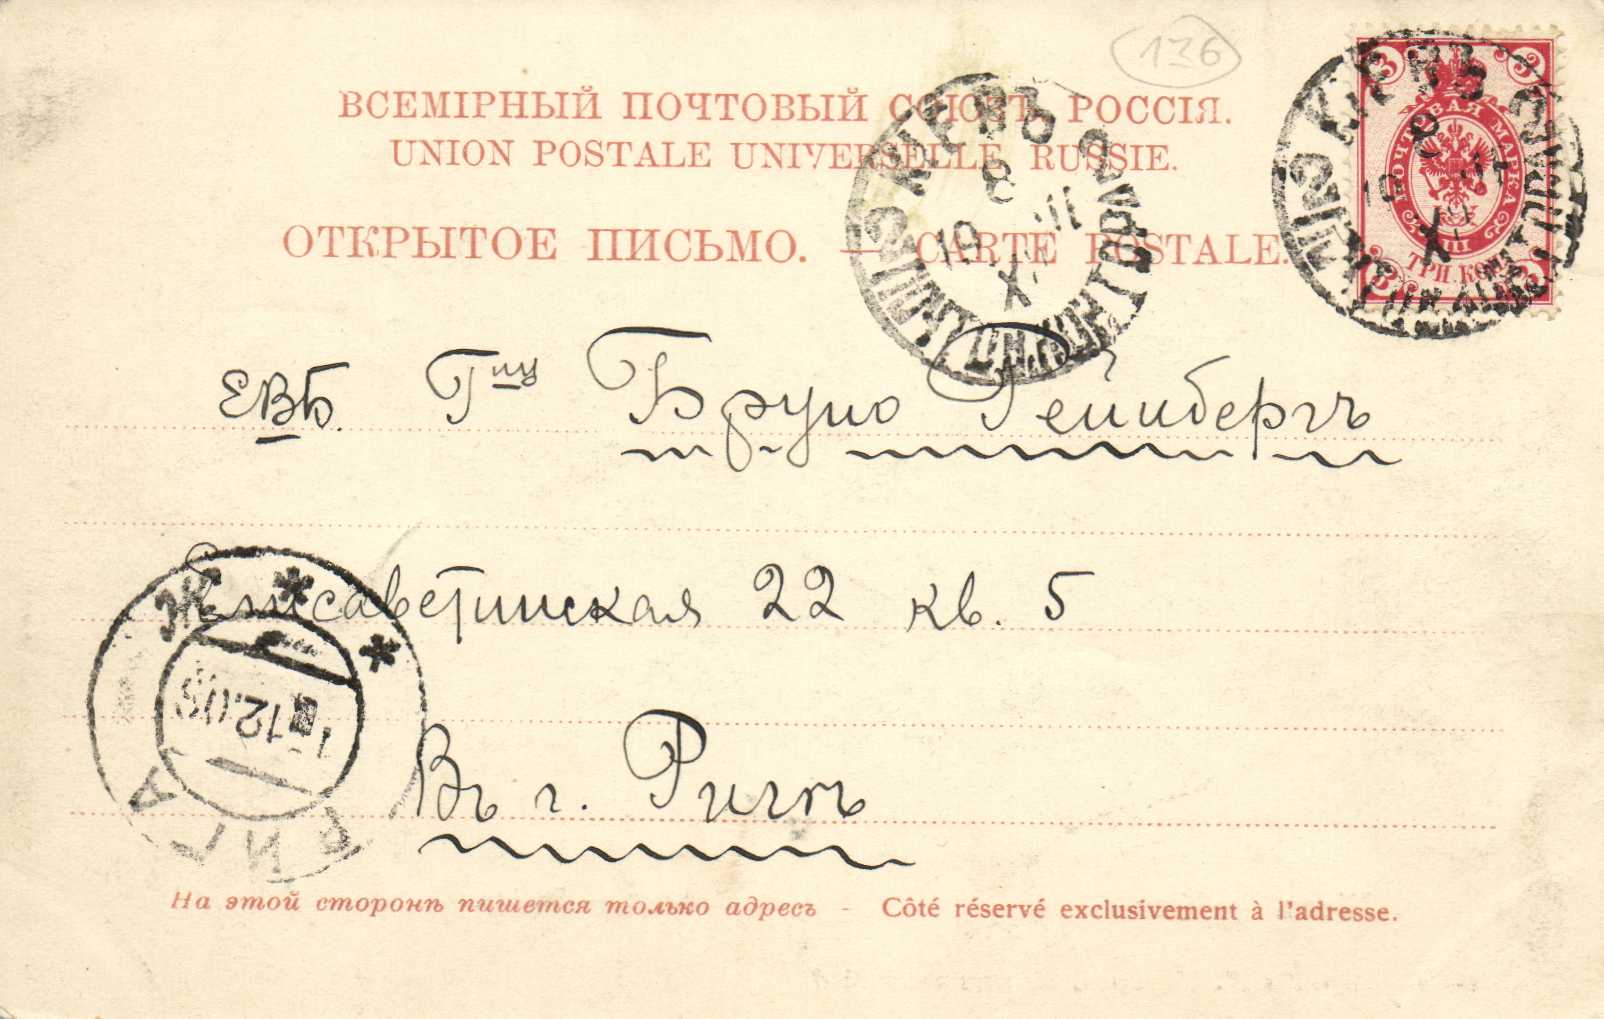 136
ВСЕМІРНЫЙ ПОЧТОВЫЙ СОЮЗЪ, РОССІЯ.
UNION POSTALE UNIVERSELLE, RUSSIE.
ОТКРЫТОЕ ПИСЬМО. — CARTE POSTALE.
КІЕВЪ
8
XII
19
КІЕВЪ
8
XII
19
3 3
ПОЧТОВАЯ МАРКА
ТРИ КОП.
3 3
ЕВБ. Гну Бруно Гейнбергъ
Елисаветинская 22 кв. 5
Въ г. Ригѣ
РИГА
12.03
На этой сторонѣ пишется только адресъ - Côté réservé exclusivement à l'adresse.